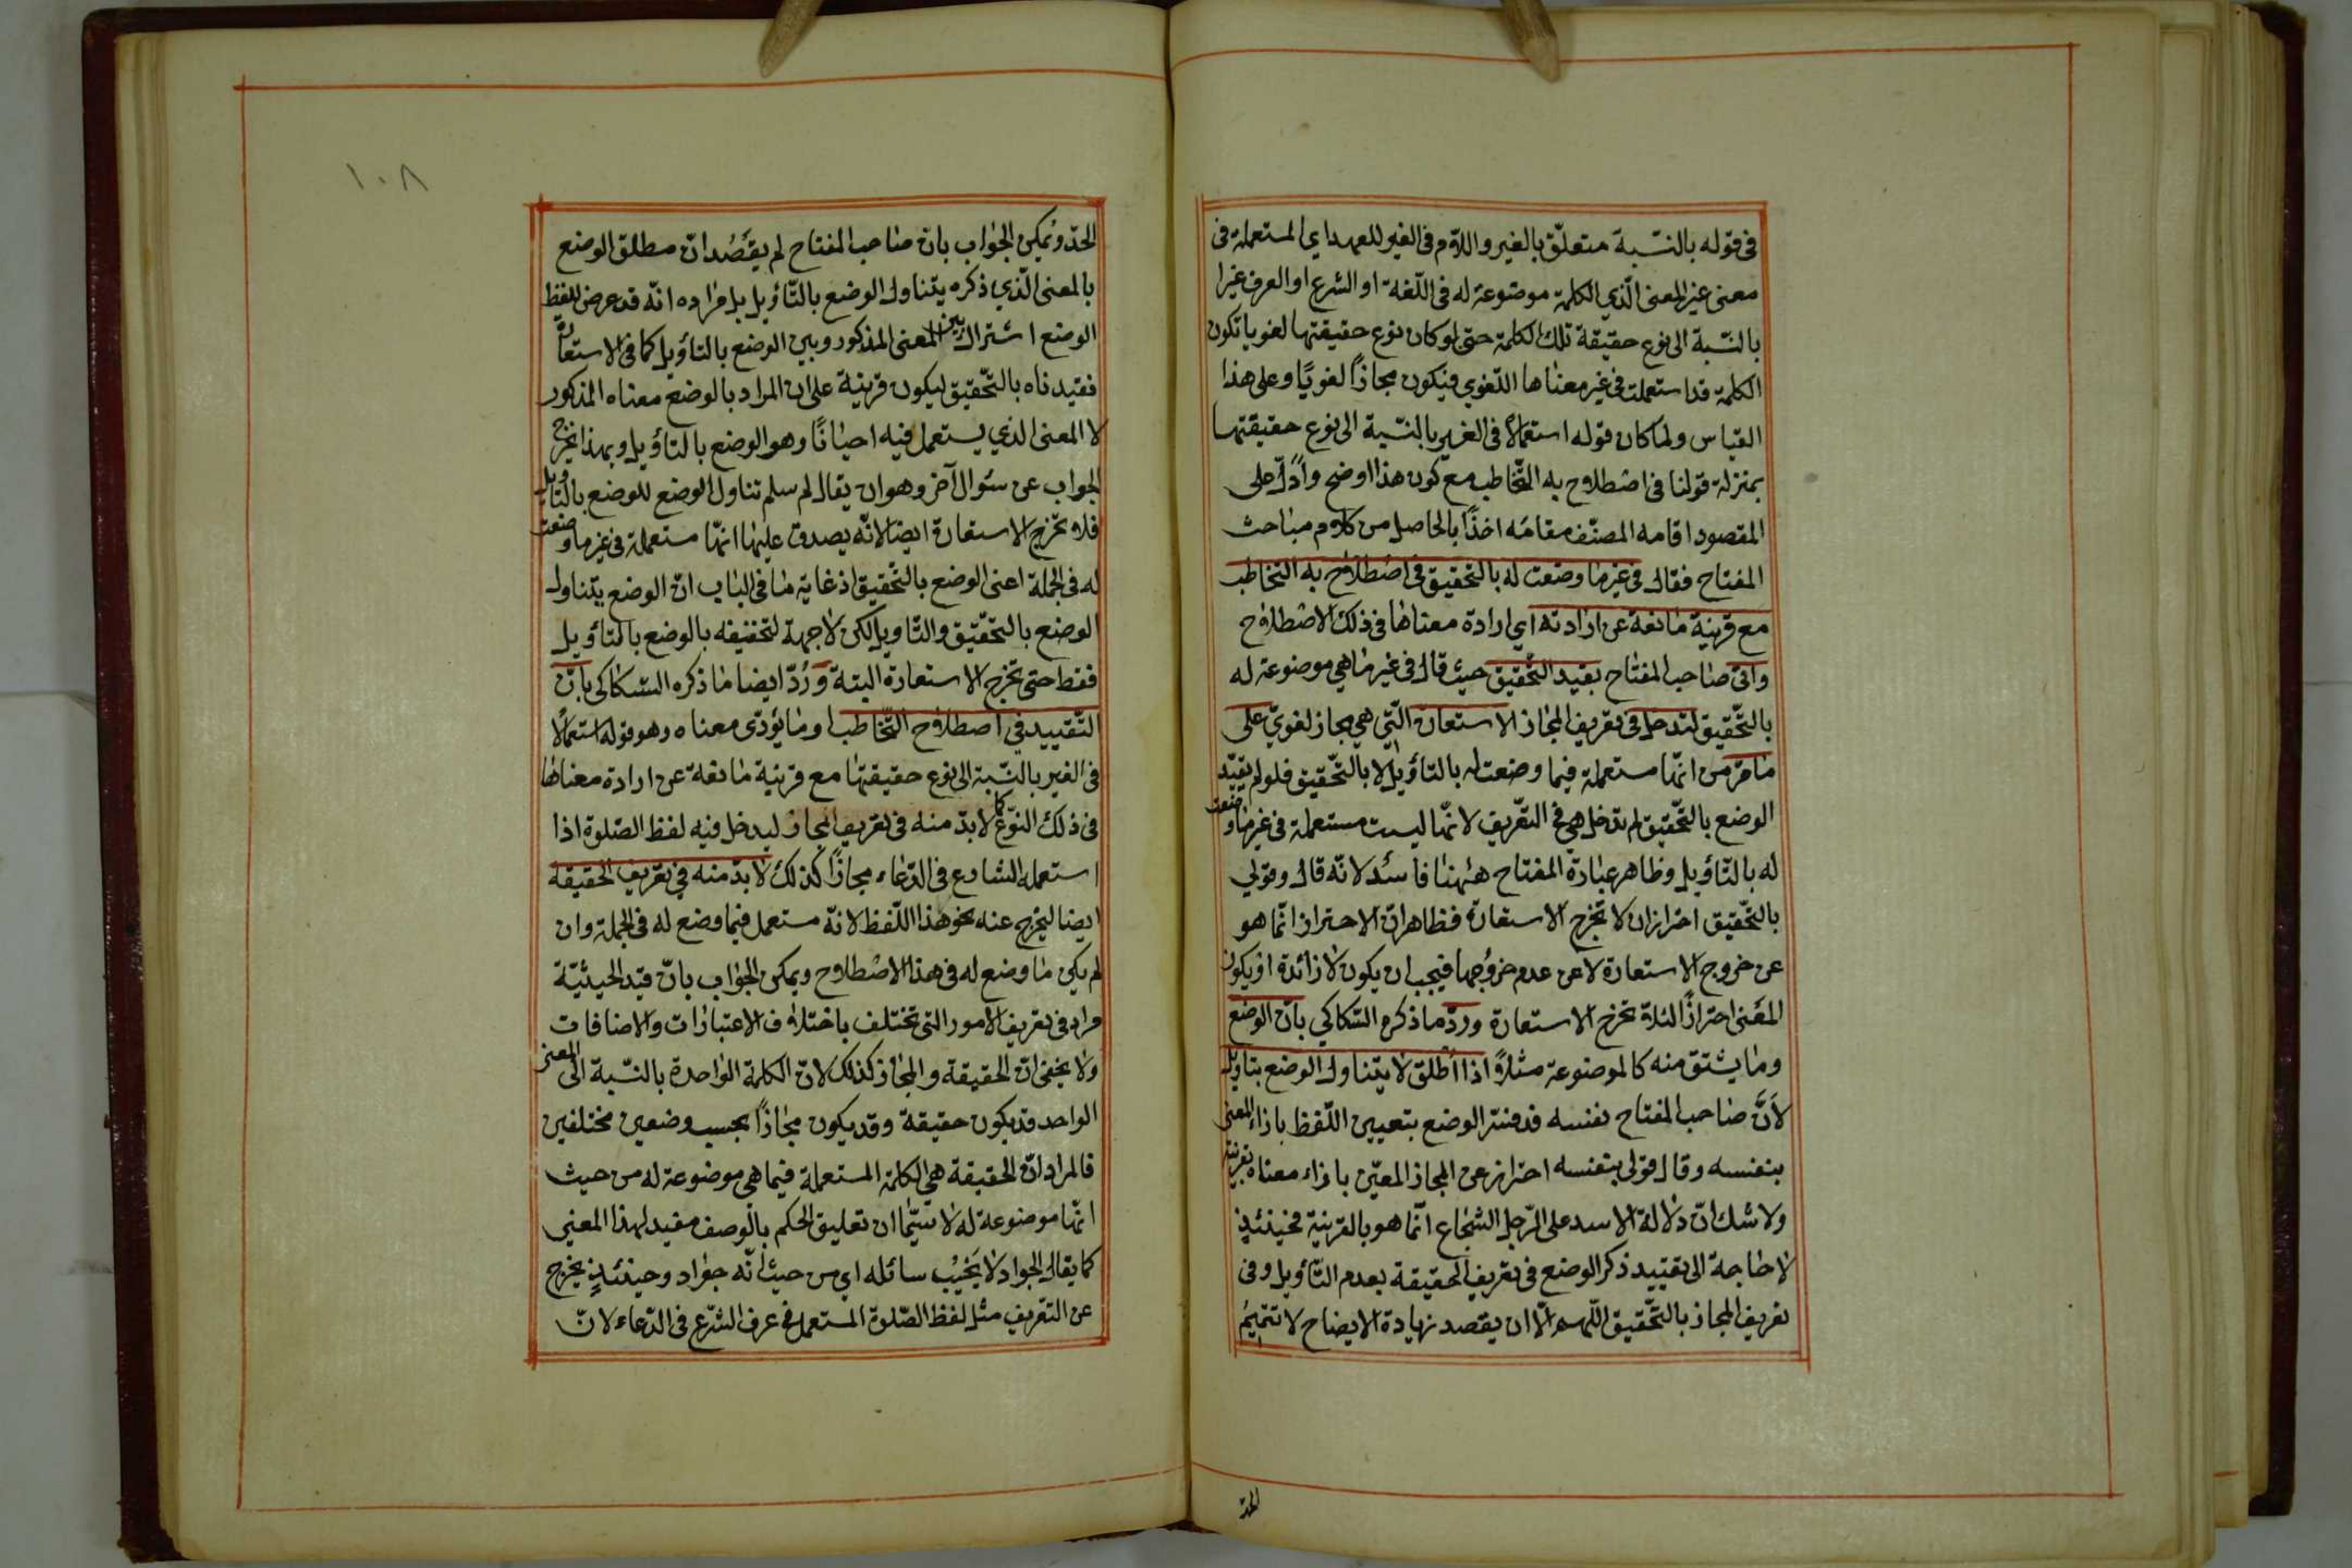 فى قوله بالنسّبة متعلّق بالغير واللاّم فى الغير للعهد اي المستعملة فى
معنى غير المعنى الّذي الكلمة موضوعة له فى اللّغة او الشرع او العرف غيرا
بالنسّبة الى نوع حقيقة تلك الكلمة حتى لو كان نوع حقيقتها لغويا تكون
الكلمة قد استعملت فى غير معناها اللّغوي فيكون مجازاً لغويًا وعلى هذا
القياس ولما كان قوله استعمالا فى الغير بالنسّبة الى نوع حقيقتها
بمنزلة قولنا فى اصْطلاح به التّخاطب مع كون هذا اوضح وادلّ على
المقصود اقامه المصنّف مقامَه اخذًا بالحاصل من كلام مباحث
المفتاح فقال فى غير ما وضعت له بالتحقيق فى اصْطلاح به التخاطب
مع قرينة مانعة عن ارادته اي ارادة معناها فى ذلك الاصْطلاح
واتى صاحب المفتاح بقيد التّحقيق حيث قال فى غير ما هي موضوعة له
بالتّحقيق لتدخل فى تعريف المجاز الاستعارة الّتي هي مجاز لغويّ على
ما مرّ من انّها مستعملة فيما وضعت له بالتاؤيل لا بالتّحقيق فلو لم يقيّد
الوضع بالتّحقيق لم تدخل هي فى التعّريف لانّها ليست مستعملة فى غير ما وضعت
له بالتّاؤيل وظاهر عبارة المفتاح ههنا فاسد لانّه قال وقولي
بالتّحقيق احتراز ان لا تخرج الاستعارة فظاهر انّ الاحتراز انّما هو
عن خروج الاستعارة لا عن عدم خروجها فيجب ان يكون لا زائدة او يكون
المعنى احترازًا لئلاّ تخرج الاستعارة وردّ ما ذكره السّكاكي بانّ الوضع
وما يشتق منه كالموضوعة مثلاً اذا اُطلق لا يتناول الوضع بتاويل
لاَنَّ صاحب المفتاح نفسه قد فسّر الوضع بتعيين اللّفظ بازاء المعنى
بنفسه وقال قولى بنفسه احتراز عن المجاز المعيّن بازاء معناه بقرينة
ولا شك انّ دلالة الاسد على الرّجل الشجاع انّما هو بالقرينة فحينئذٍ
لا حاجة الى تقييد ذكر الوضع فى تعريف الحقيقة بعدم التّاؤيل وفى
تعريف المجاز بالتّحقيق اللّهم الاّ ان يقصد زيادة الايضاح لا تتميمُ
الحدّ
١٠٨
الحدّ ويُمكن الجواب بان صاحب المفتاح لم يقصُد انّ مطلق الوضع
بالمعنى الّذي ذكره يتناول الوضع بالتّاؤيل بل مراده انّه قد عرض للفظ
الوضع اشتراك بين المعنى المذكور وبين الوضع بالتاؤيل كما فى الاستعارة
فقيدناه بالتّحقيق ليكون قرينة على ان المراد بالوضع معناه المذكور
لا المعنى الذي يستعمل فيه احيانًا وهو الوضع بالتاؤيل وبهذا يخرج
الجواب عن سئوال آخر وهو ان يقال لم سلم تناول الوضع للوضع بالتاويل
فلا تخرج الاستعارة ايضا لانّه يصدق عليها انّها مستعملة فى غير ما وضعت
له فى الجملة اعنى الوضع بالتّحقيق اذ غاية ما فى الباب انّ الوضع يتناول
الوضع بالتحّقيق والتّاويل لكن لا جهة لتخصيصه بالوضع بالتاؤيل
فقط حتى تخرج الاستعارة البتة ورُدّ ايضا ما ذكره السّكاكى بانّ
التّقييد فى اصطلاح التّخاطب او ما يؤدّى معناه وهو قوله استعمالًا
فى الغير بالنسّبة الى نوع حقيقتها مع قرينة مانعة عن ارادة معناها
فى ذلك النّوع كما لا بدّ منه فى تعريف المجاز ليدخل فيه لفظ الصّلوة اذا
استعمله الشارع فى الدّعاء مجازًا كذلك لا بدّ منه فى تعريف الحقيقة
ايضا ليخرج عنه نحو هذا اللّفظ لانّه مستعمل فيما وضع له فى الجملة وان
لم يكن ما وضع له فى هذا الاصْطلاح ويمكن الجواب بانّ قيد الحيثيّة
مراد فى تعريف الامور التى تختلف باختلاف الاعتبارات والاضافات
ولا يخفى انّ الحقيقة والمجاز كذلك لانّ الكلمة الواحدة بالنسّبة الى المعنى
الواحد قد يكون حقيقة وقد يكون مجازًا بحسب وضعين مختلفين
فالمراد انّ الحقيقة هي الكلمة المستعملة فيما هى موضوعة له من حيث
انّها موضوعة له لا سيّما ان تعليق الحكم بالوصف مفيد لهذا المعنى
كما يقال الجواد لا يُخيّبُ سائله اي من حيث انّه جواد وحينئذٍ يخرج
عن التعّريف مثل لفظ الصّلوة المستعمل فى عرف الشّرع فى الدّعاء لانّ